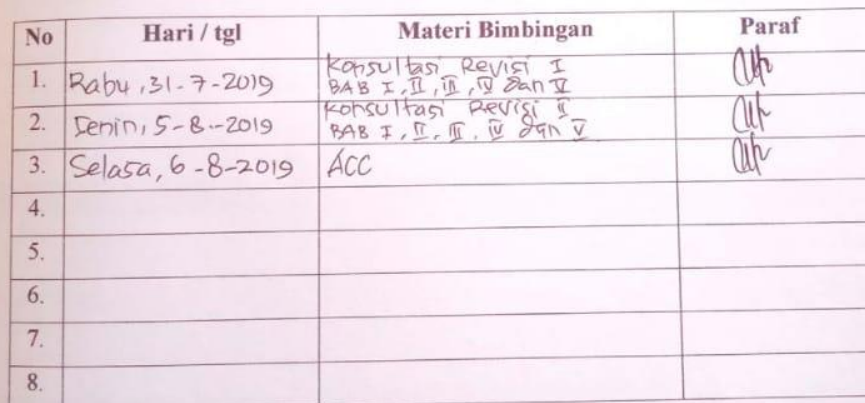 No Hari / tgl Materi Bimbingan Paraf
1. Rabu, 31-7-2019 Konsultasi Revisi I
BAB I, II, III, IV dan V
2. Senin, 5-8-2019 Konsultasi Revisi II
BAB I, II, III, IV dan V
3. Selasa, 6-8-2019 ACC
4.
5.
6.
7.
8.